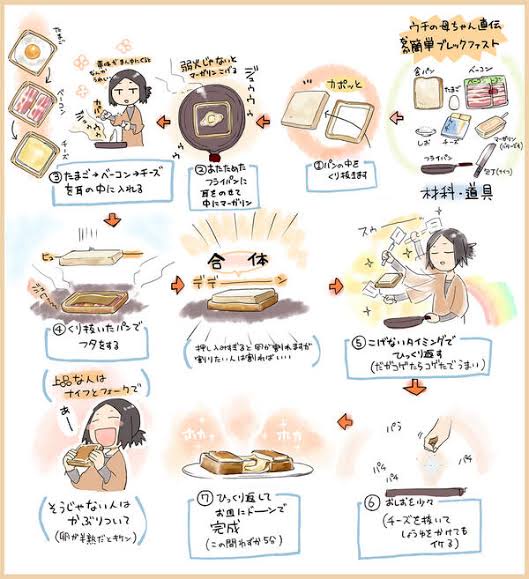 ウチの母ちゃん直伝
めっちゃ簡単ブレックファスト
食パン
たまご
ベーコン
しお
チーズ
マーガリン
(バターでも)
フライパン
包丁(ナイフ)
材料・道具
カポッと
①パンの中を
くり抜きます
弱火じゃないと
マーガリンこげる
ジュゥゥゥ
②あたためた
フライパンに
耳をのせて
中にマーガリン
たまご
ベーコン
チーズ
③たまご→ベーコン→チーズ
を耳の中に入れる
④くり抜いたパンで
フタをする
合体
デデーーン
押し込みすぎると卵が割れますが
割りたい人は割ればいい
スゥ
⑤こげないタイミングで
ひっくり返す
(だがコゲたらコゲたでうまい)
パラ
パチ
パチ
パチ
⑥おしお少々
(チーズを抜いて
しょうゆをかけても
イケる)
ホカッ
ホカッ
⑦ひっくり返して
お皿にドーンで
完成
(この間わずか5分)
上品な人は
ナイフとフォークで
あー
そうじゃない人は
かぶりついて
(卵が半熟だとキケン)